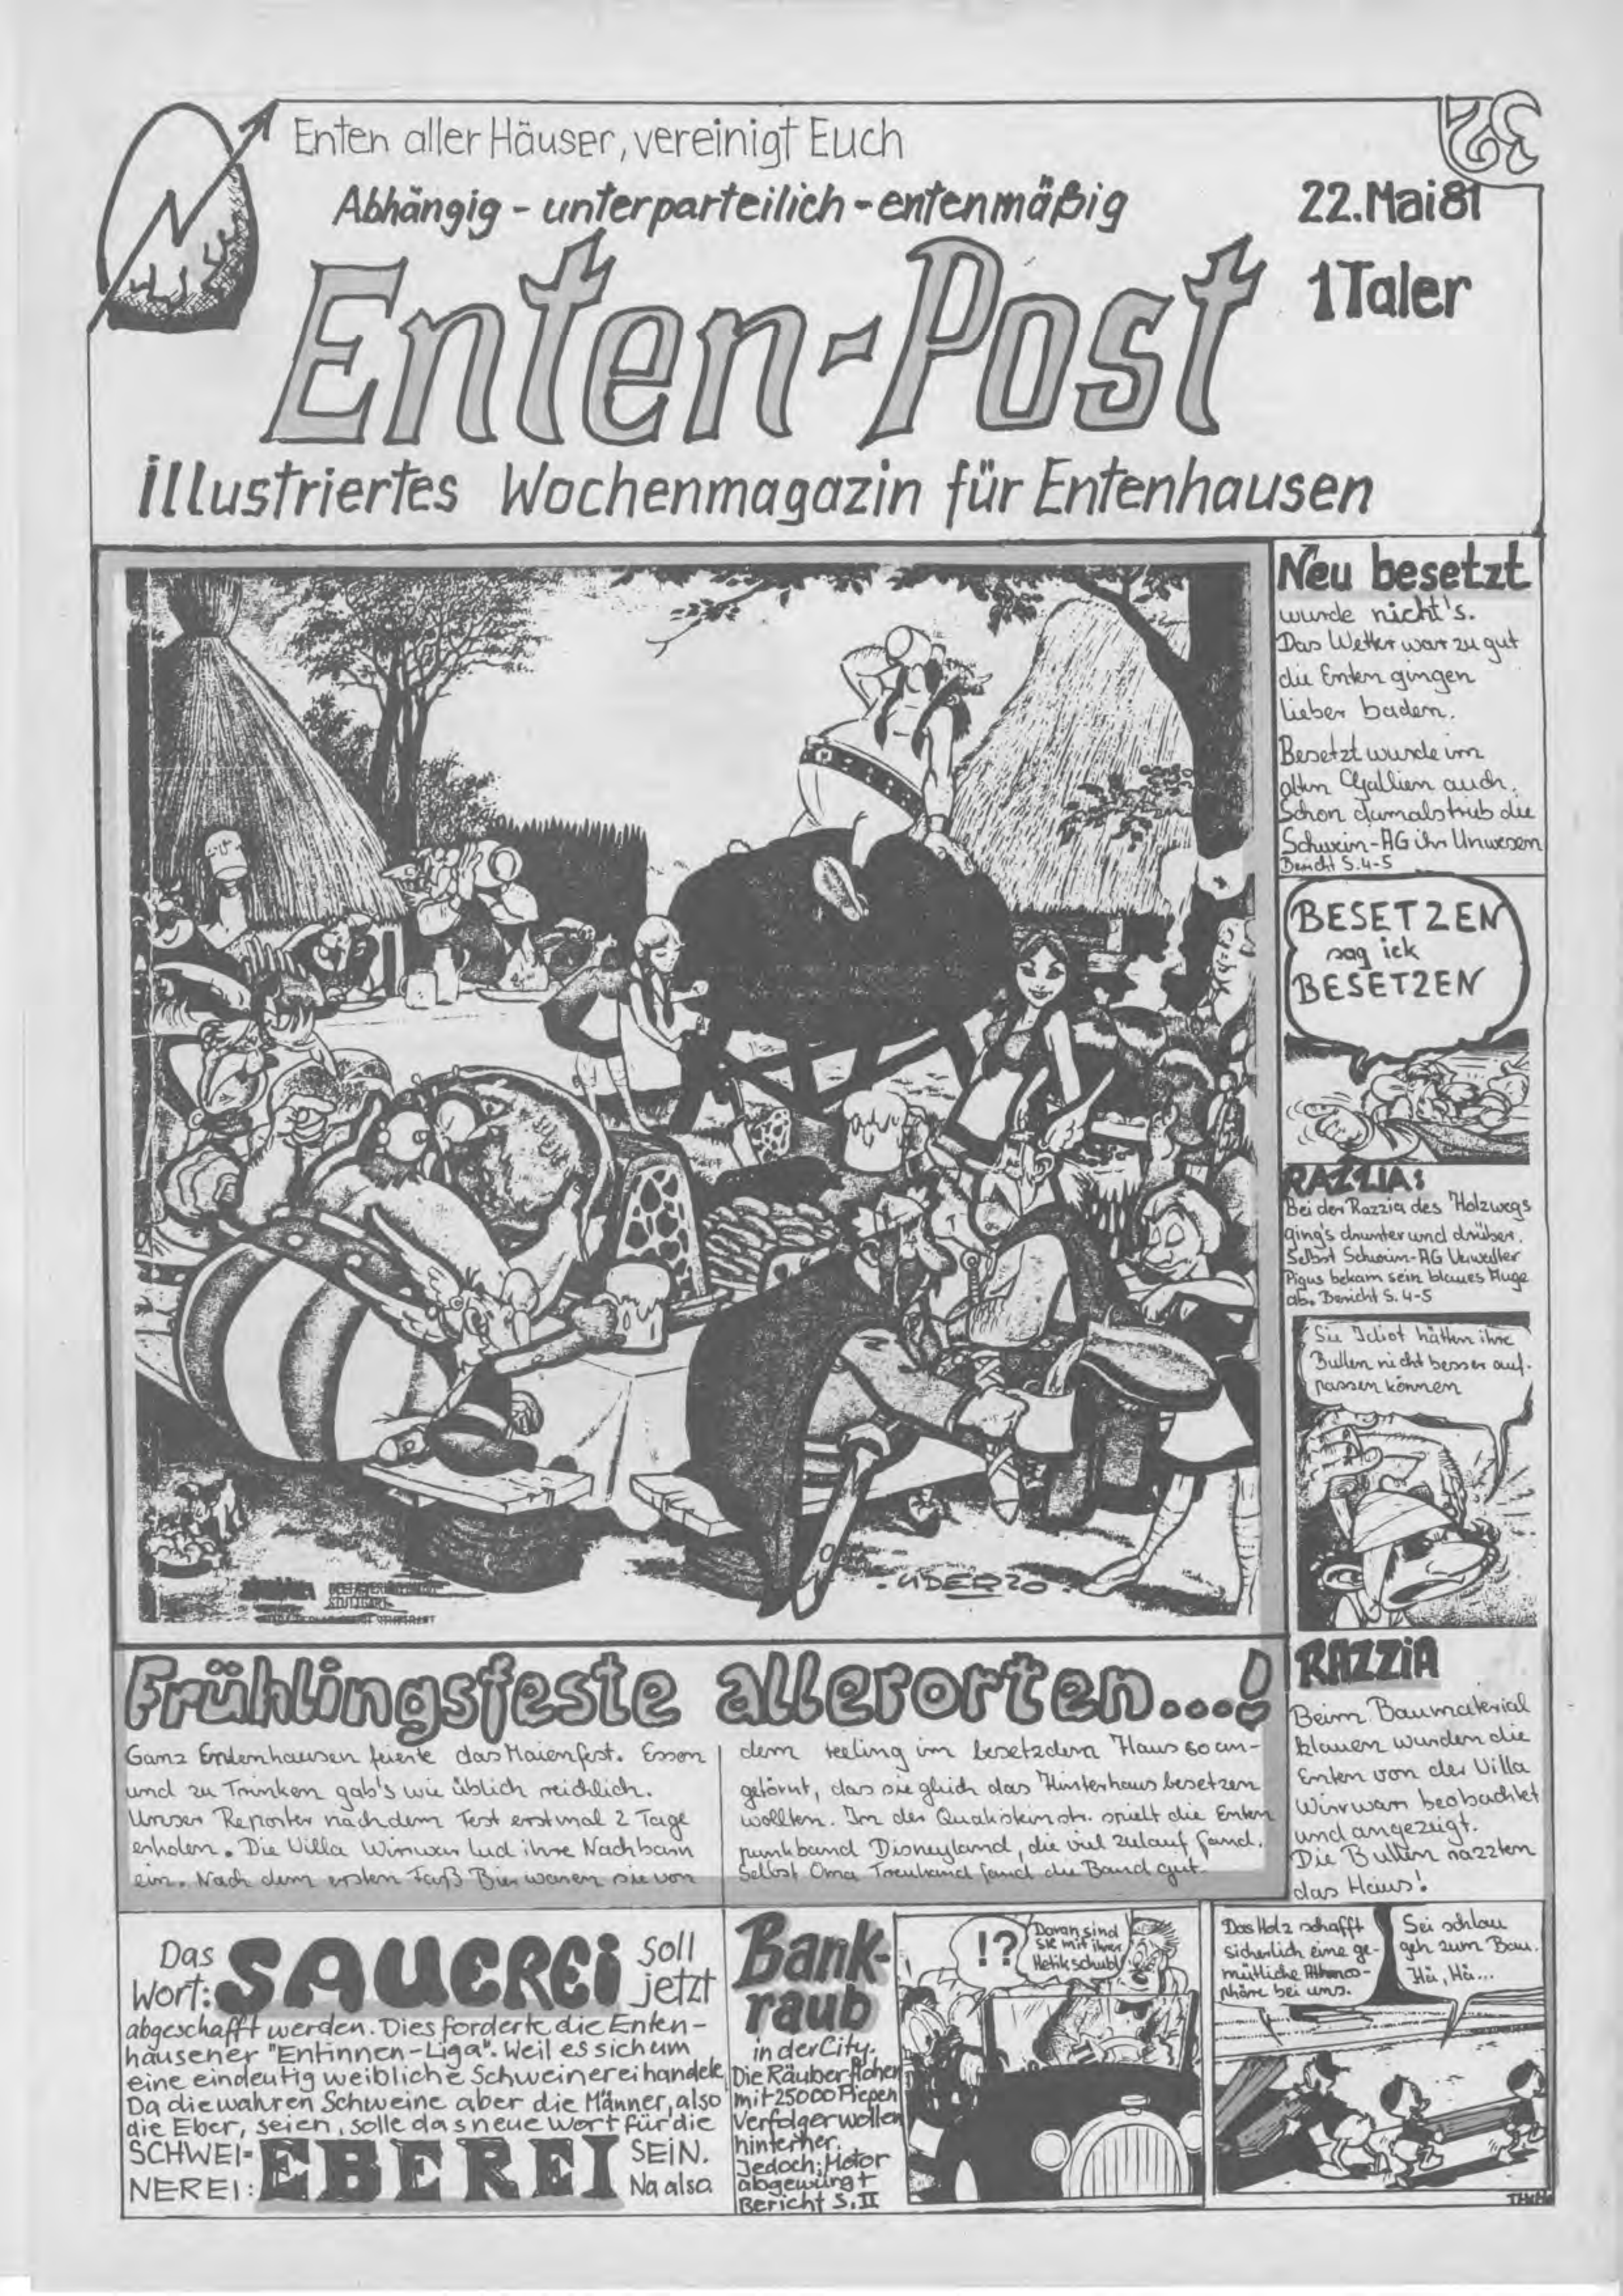 Enten aller Häuser, vereinigt Euch
Abhängig - unterparteilich - entenmäßig
22. Mai 81
Enten-Post
1 Taler
illustriertes Wochenmagazin für Entenhausen
Neu besetzt
wurde nicht's.
Das Wetter war zu gut
die Enten gingen
lieber baden.
Besetzt wurde im
alten Gallien auch.
Schon damals trieb die
Schwein-AG ihr Unwesen
Bericht S. 4-5
BESETZEN
sag ick
BESETZEN
RAZZIA:
Bei der Razzia des Holzwegs
ging's drunter und drüber.
Selbst Schwein-AG Verwalter
Pigus bekam sein blaues Auge
ab. Bericht S. 4-5
Sie Idiot hätten ihre
Bullen nicht besser auf-
passen können
UDERZO
Frühlingsfeste allerorten...!
Ganz Entenhausen feierte das Maienfest. Essen
und zu Trinken gab's wie üblich reichlich.
Unser Reporter nach dem Fest erstmal 2 Tage
erholen. Die Villa Wirrwarr lud ihre Nachbarn
ein. Nach dem ersten Faß Bier waren sie von
dem feeling im besetzden Haus so an-
getörnt, das sie gleich das Hinterhaus besetzen
wollten. In der Quaksteinstr. spielt die Enten
punkband Disneyland, die viel Zulauf fand.
Selbst Oma Treuhand fand die Band gut.
RAZZIA
Beim Baumaterial
klauen wurden die
Enten von der Villa
Wirrwarr beobachtet
und angezeigt.
Die Bullen razzten
das Haus!
Das
Wort: SAUEREI soll
jetzt
abgeschafft werden. Dies forderte die Enten-
hausener "Entinnen-Liga". Weil es sich um
eine eindeutig weibliche Schweinerei handele
Da die wahren Schweine aber die Männer, also
die Eber, seien, solle das neue Wort für die
SCHWEI-
NEREI: EBEREI SEIN.
Na also
Bank-
raub
in der City.
Die Räuber flohen
mit 25000 Piepen
Verfolger wollen
hinterher.
Jedoch: Motor
abgewürgt
Bericht S. II
!?
Daran sind
sie mit ihrer
Hetik schuld
Das Holz schafft
sicherlich eine ge-
mütliche Atmos-
phäre bei uns.
Sei schlau
geh zum Bau.
Hä, Hä...